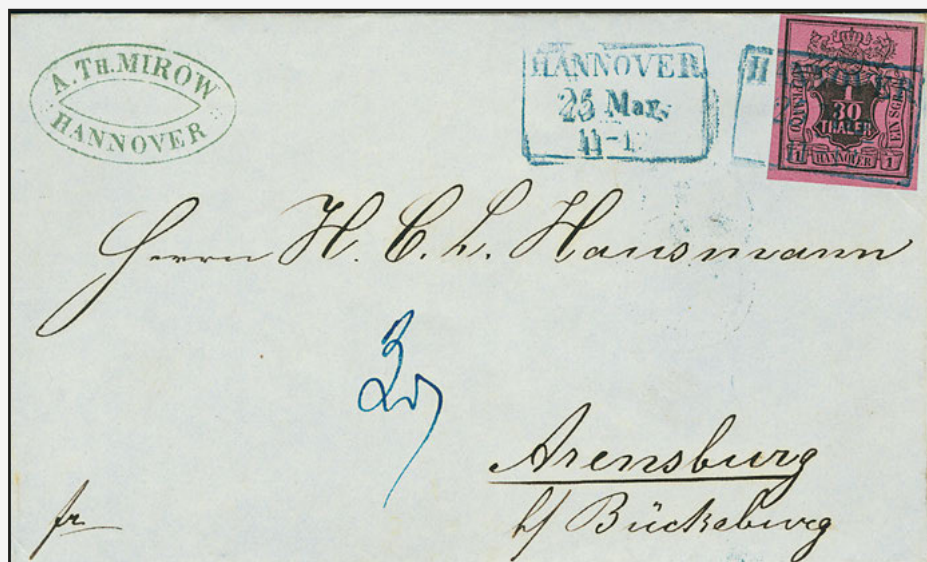 A. TH. MIROW
HANNOVER
HANNOVER
25 Mar.
11-1
HANNOVER
1
30
THALER
EIN SGR.
1 HANNOVER 1
Herrn H. C. L. Hausmann
Arensburg
b/ Bückeburg
fr.